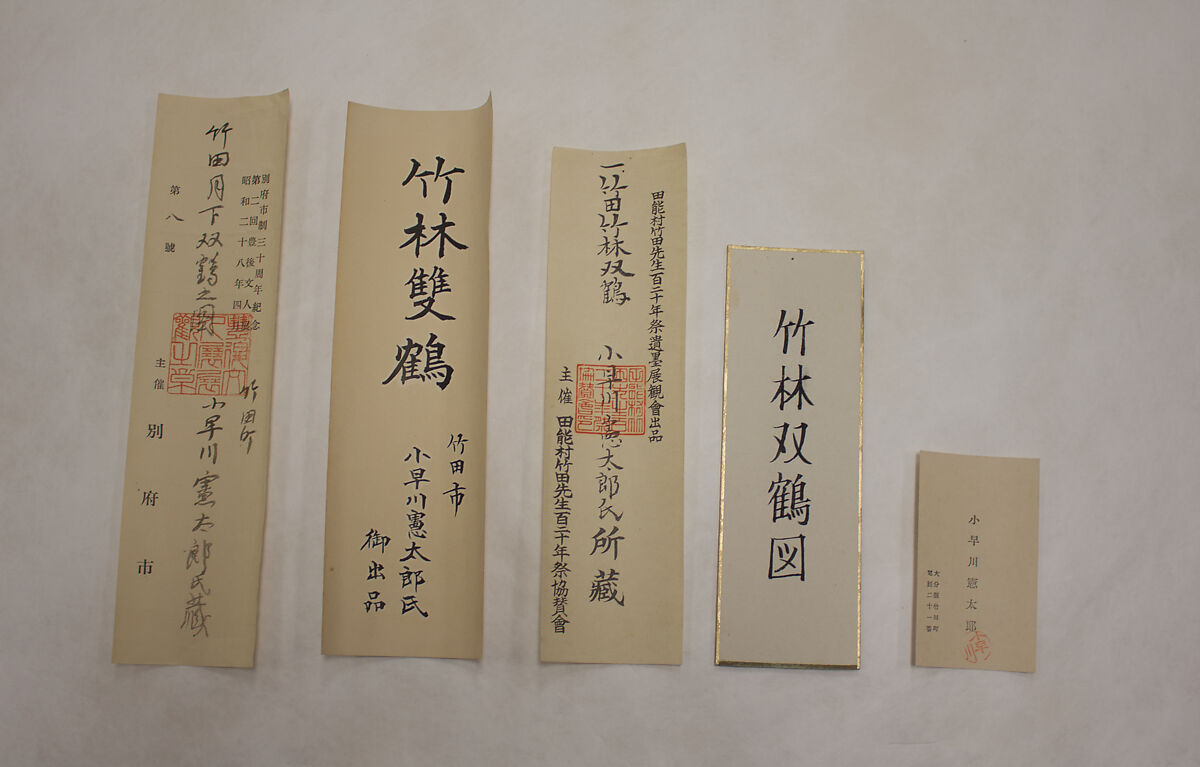 別府市制三十周年紀念
第二回豊後文人展
昭和二十八年四月
竹田月下双鶴之図
竹田町
小早川憲太郎氏蔵
第八號
主催
別府市
竹林雙鶴
竹田市
小早川憲太郎氏
御出品
田能村竹田先生百二十年祭遺墨展観會出品
一、竹田竹林双鶴
小早川憲太郎氏所藏
主催 田能村竹田先生百二十年祭協賛會
竹林双鶴図
小早川憲太郎
大分縣竹田町
電話二十一番